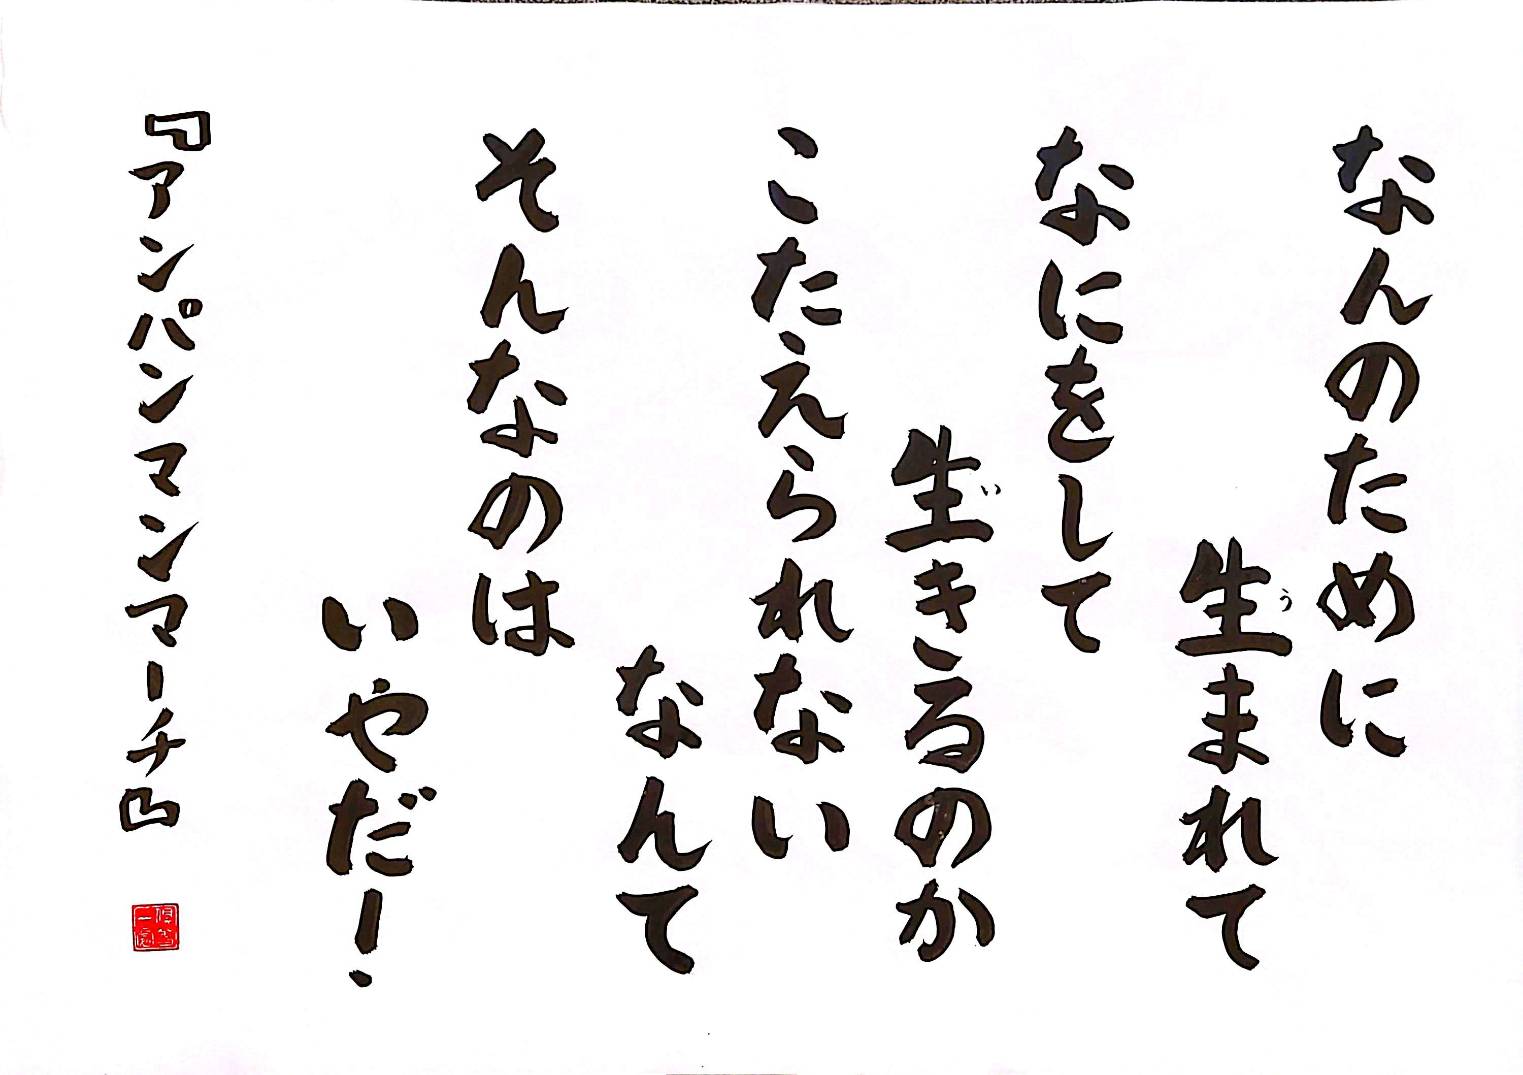 なんのために
生まれて
なにをして
生きるのか
こたえられない
なんて
そんなのは
いやだ!
『アンパンマンマーチ』